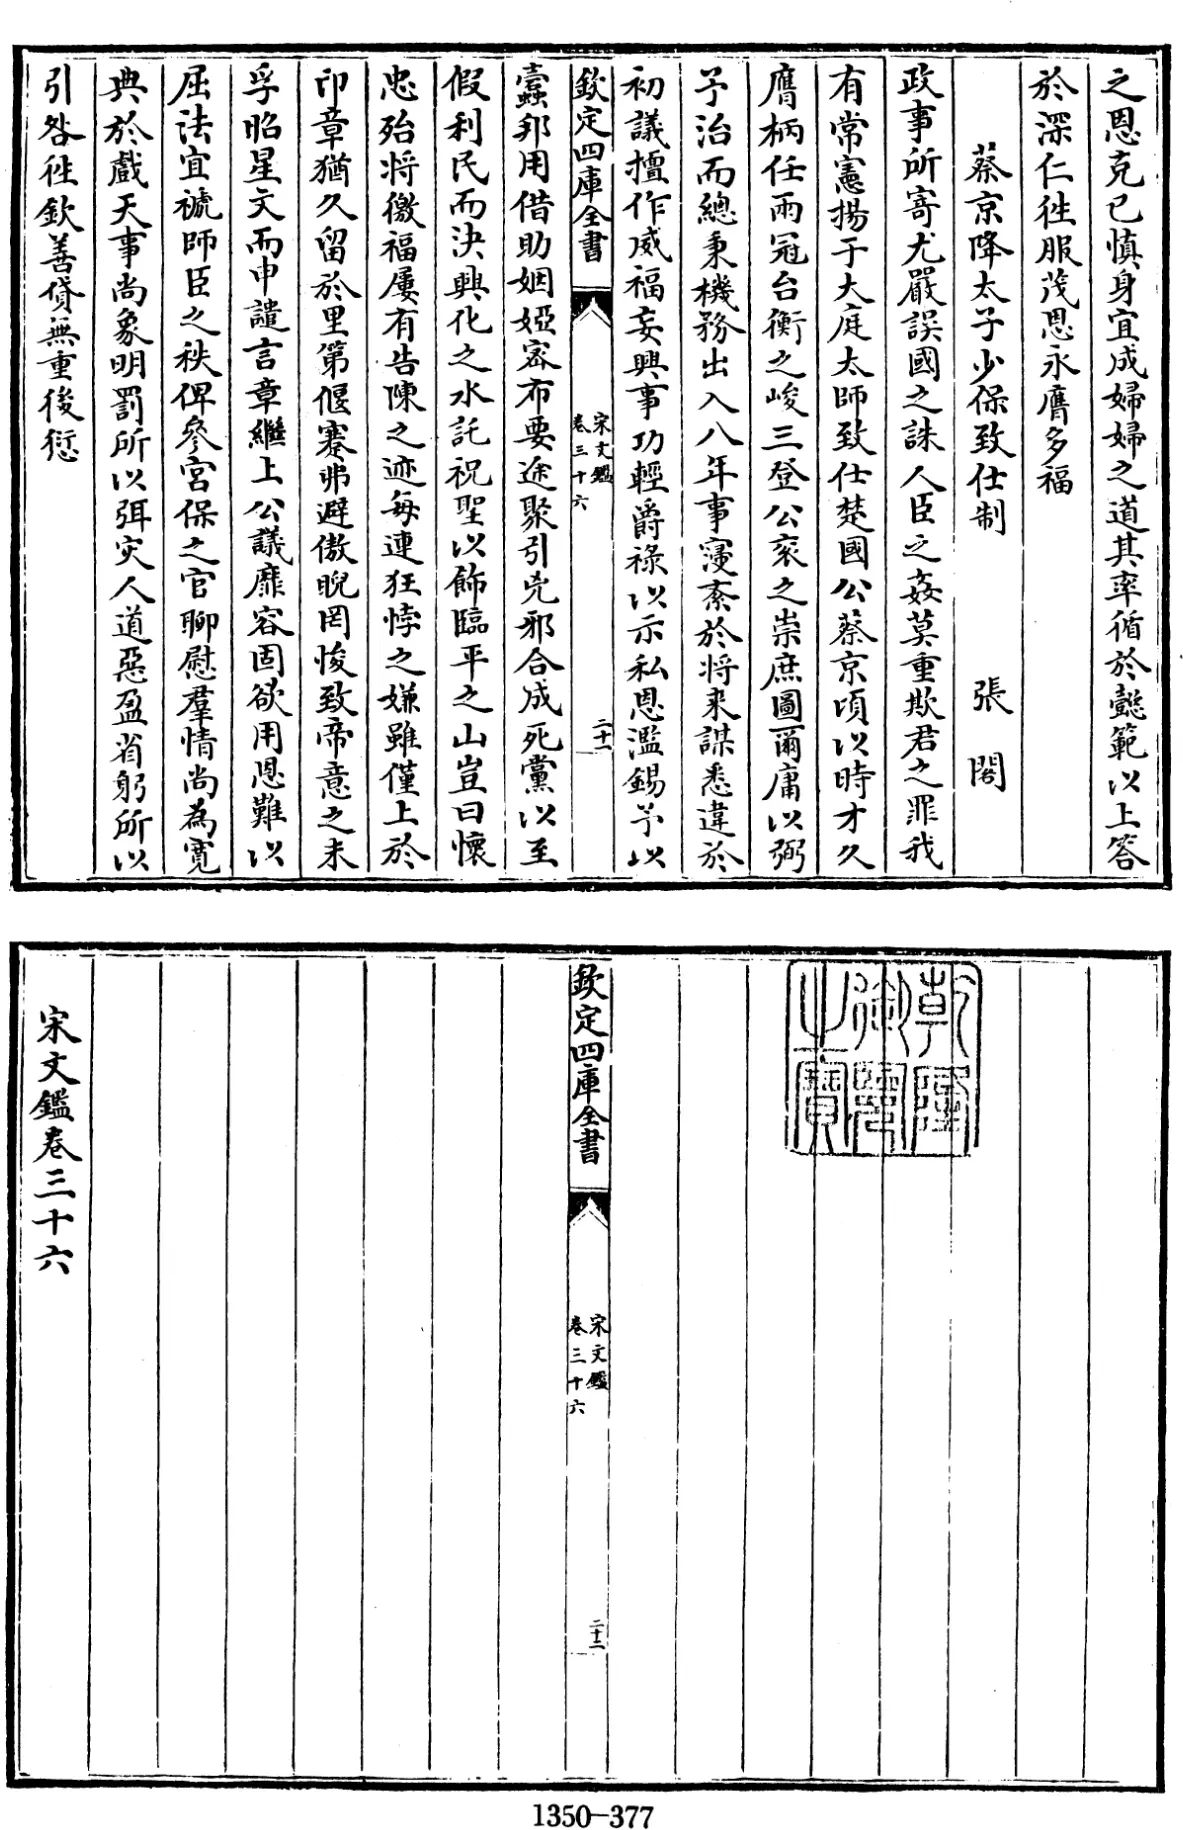 之恩克己慎身宜成婦婦之道其率循於懿範以上答
於深仁徃服茂恩永膺多福
蔡京降太子少保致仕制　張閣
政事所寄尤嚴誤國之誅人臣之姦莫重欺君之罪我
有常憲揚于大庭太師致仕楚國公蔡京頃以時才久
膺柄任兩冠台衡之峻三登公衮之崇庶圖爾庸以弼
予治而總秉機務出入八年事寖紊於将来謀悉違於
初議擅作威福妄興事功輕爵祿以示私恩濫錫予以
欽定四庫全書
宋文鑑
卷三十六
二十一
蠹邦用借助姻婭宻布要途聚引兇邪合成死黨以至
假利民而決興化之水託祝聖以飾臨平之山豈曰懐
忠殆将徼福屢有告陳之迹每連狂悖之嫌雖僅上於
印章猶久留於里第偃蹇弗避傲睨罔悛致帝意之未
孚昭星文而申譴言章繼上公議靡容固欲用恩難以
屈法宜禠師臣之秩俾參宮保之官聊慰羣情尚為寛
典於戲天事尚象明罰所以弭灾人道惡盈省躬所以
引咎徃欽善貸無重後愆
乾隆御覽之寶
欽定四庫全書
宋文鑑
卷三十六
二十二
宋文鑑卷三十六
1350-377